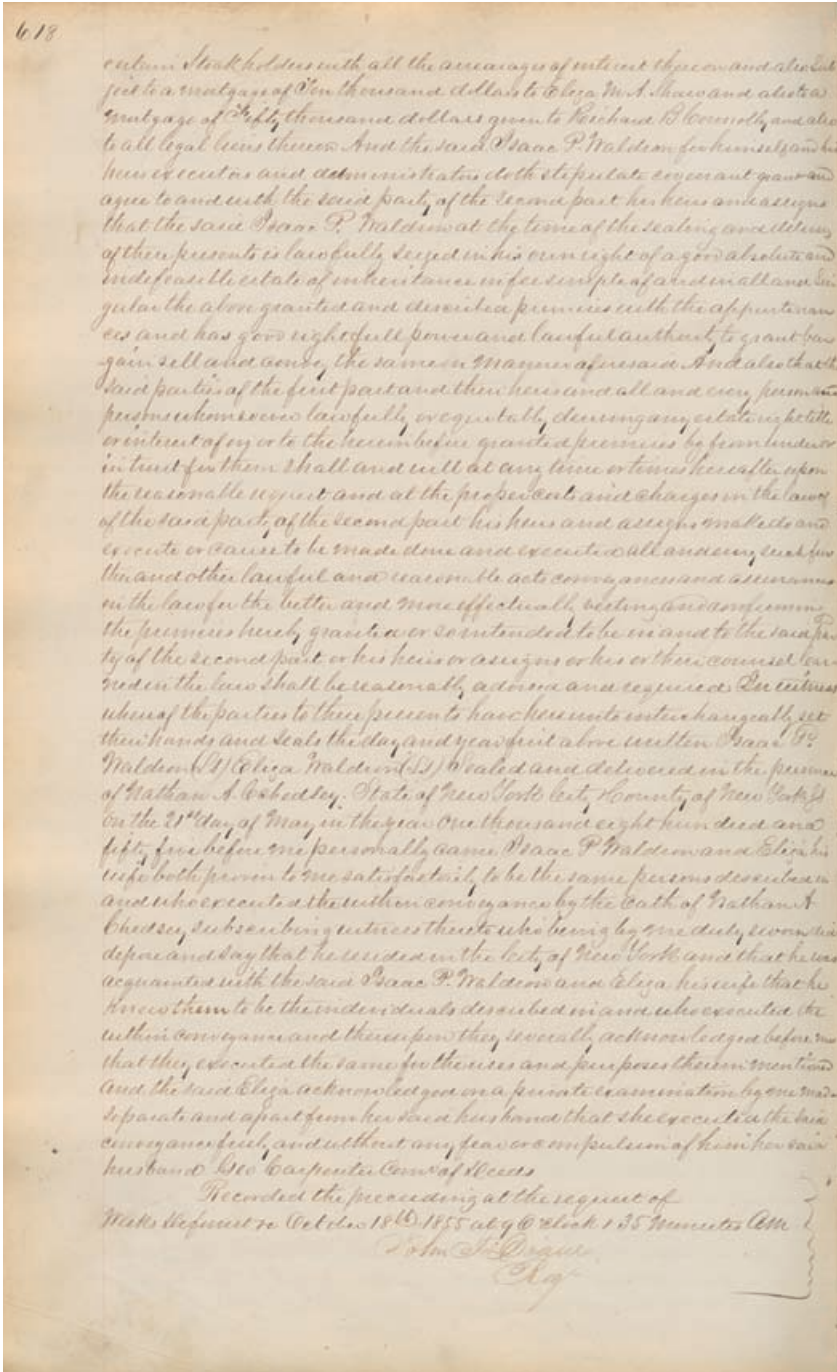 618
certain Stockholders with all the arrearages of interest thereon and also Sub
ject to a mortgage of Ten thousand dollars to Eliza M. A. Shaw and also to a
mortgage of Fifty thousand dollars given to Richard B Connolly and also
to all legal liens thereon And the said Isaac P. Waldron for himself and his
heirs executors and administrators doth stipulate covenant grant and
agree to and with the said party of the second part his heirs and assigns
that the said Isaac P. Waldron at the time of the sealing and delivery
of these presents is lawfully seized in his own right of a good absolute and
indefeasible estate of inheritance in fee simple of and in all and Sin
gular the above granted and described premises with the appurtenan
ces and has good right full power and lawful authority to grant bar
gain sell and convey the same in manner aforesaid And also that the
said parties of the first part and their heirs and all and every person and
persons whomsoever lawfully or equitably deriving any estate right title
or interest of in or to the herein before granted premises by from under or
in trust for them shall and will at any time or times hereafter upon
the reasonable request and at the proper costs and charges in the law
of the said party of the second part his heirs and assigns make do and
execute or cause to be made done and executed all and every such fur
ther and other lawful and reasonable acts conveyances and assurances
in the law for the better and more effectually vesting and confirming
the premises hereby granted or so intended to be in and to the said par
ty of the second part or his heirs or assigns or his or their counsel lear
ned in the law shall be reasonably advised and required In witness
whereof the parties to these presents have hereunto interchangeably set
their hands and seals the day and year first above written Isaac P.
Waldron (LS) Eliza Waldron (LS) Sealed and delivered in the presence
of Nathan A. Chedsey. State of New York City & County of New York SS
On the 21st day of May in the year One thousand eight hundred and
fifty five before me personally came Isaac P Waldron and Eliza his
wife both proven to me satisfactorily to be the same persons described in
and who executed the within conveyance by the oath of Nathan A
Chedsey subscribing witness thereto who being by me duly sworn did
depose and say that he resided in the City of New York and that he was
acquainted with the said Isaac P. Waldron and Eliza his wife that he
knew them to be the individuals described in and who executed the
within conveyance and thereupon they severally acknowledged before me
that they executed the same for the uses and purposes therein mentioned
And the said Eliza acknowledged on a private examination by me made
separate and apart from her said husband that she executed the said
conveyance freely and without any fear or compulsion of him her said
husband Geo Carpenter Comr of Deeds
Recorded the preceding at the request of
October 18th 1855 at 9 O'Clock & 35 Minutes AM
John
Reg